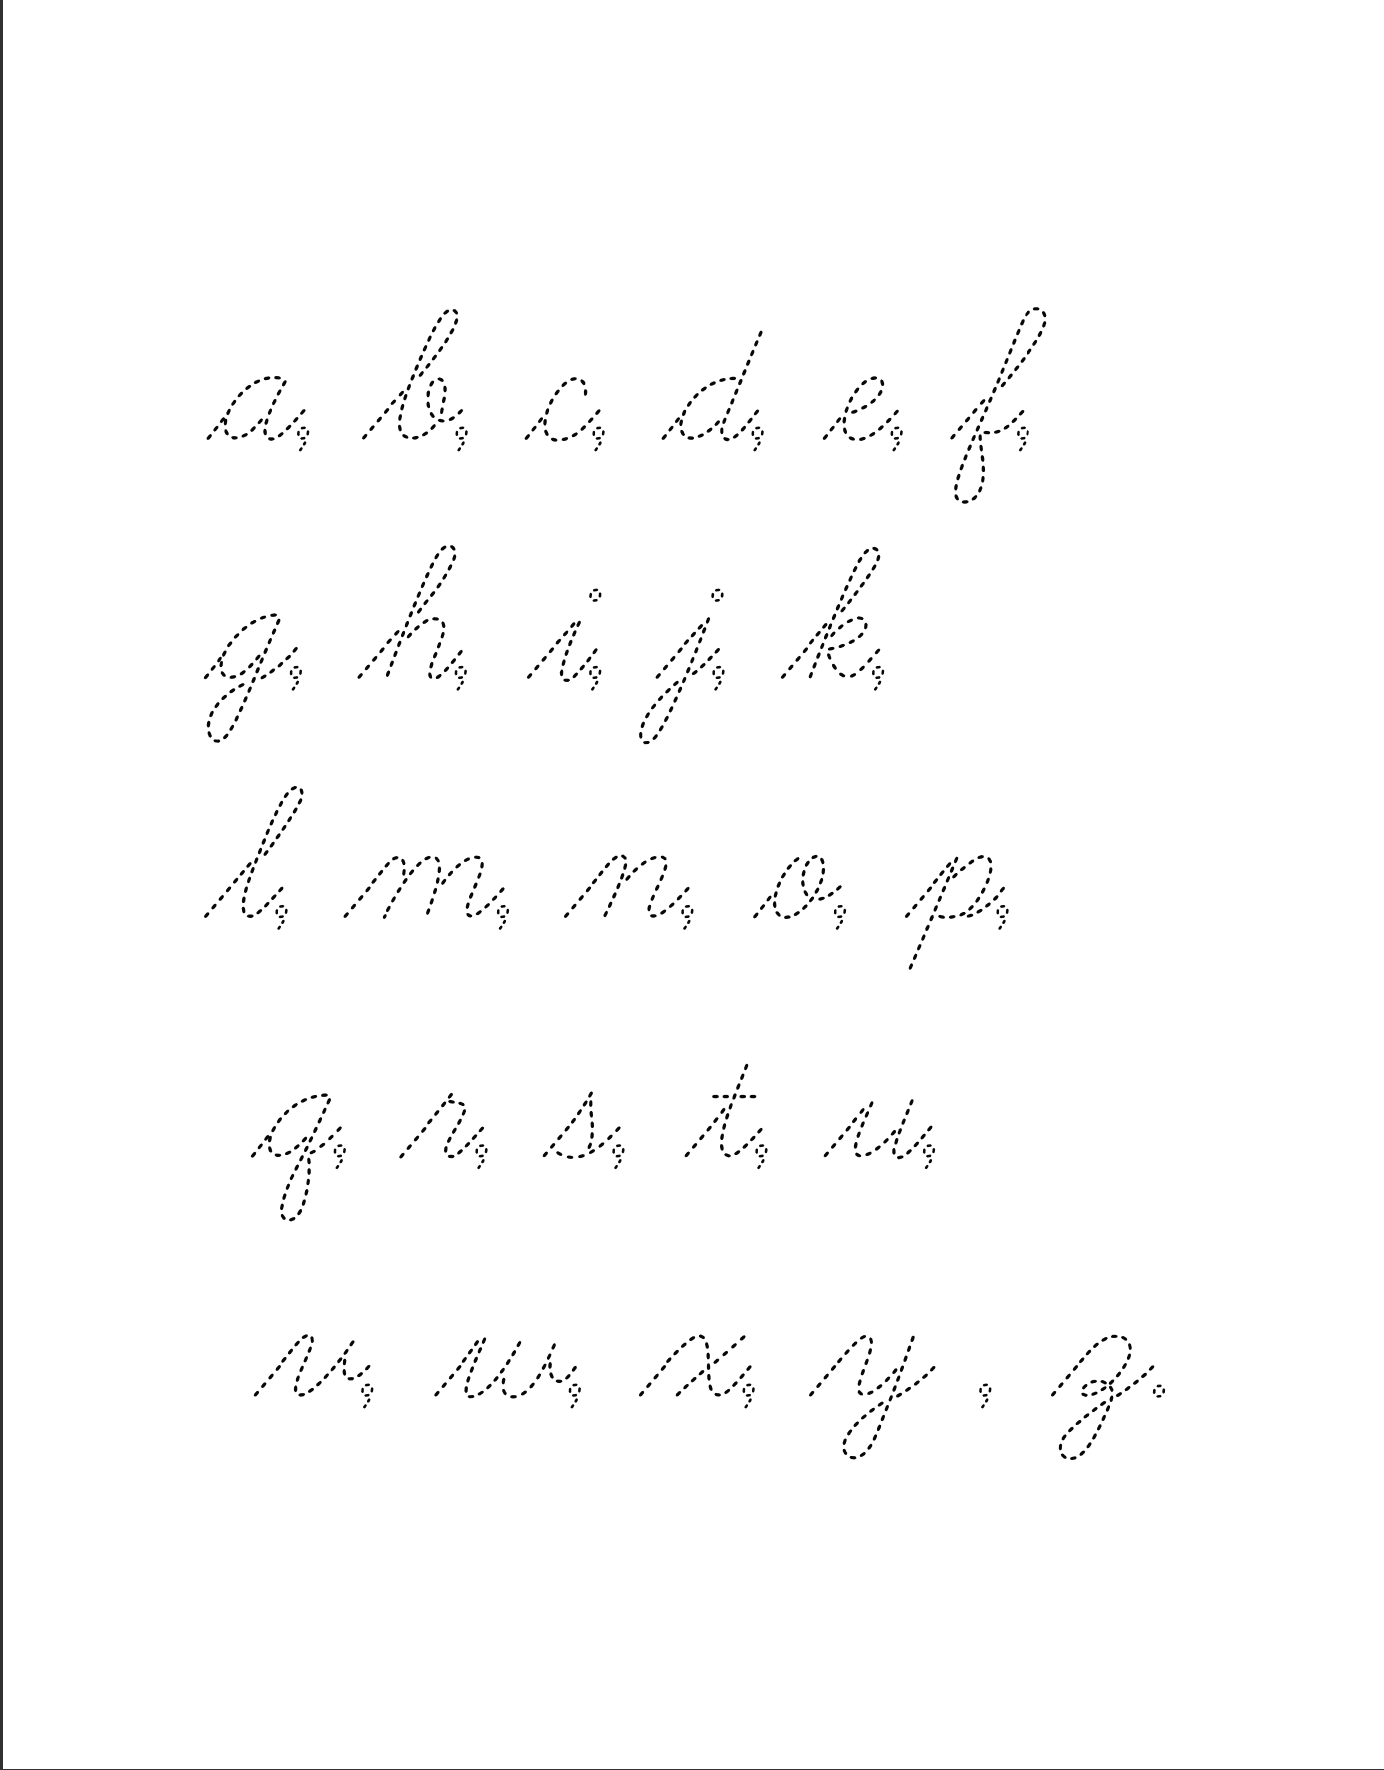 a, b, c, d, e, f,
g, h, i, j, k,
l, m, n, o, p,
q, r, s, t, u,
v, w, x, y , z.